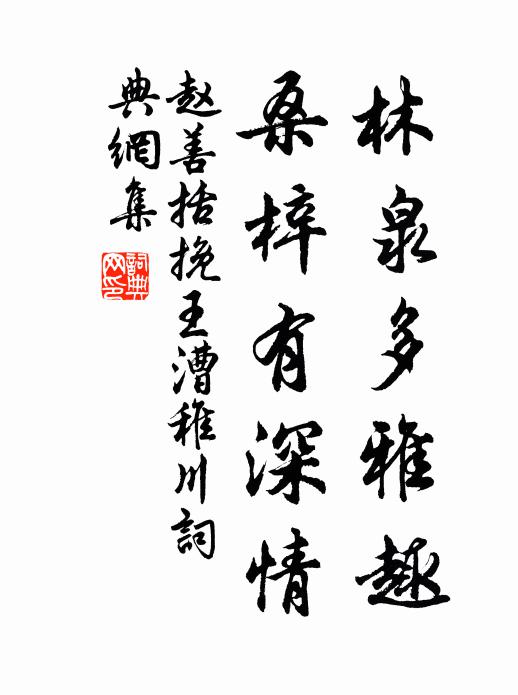 林泉多雅趣
桑梓有深情
赵善括挽王漕稚川詞
典網集
詞典网印